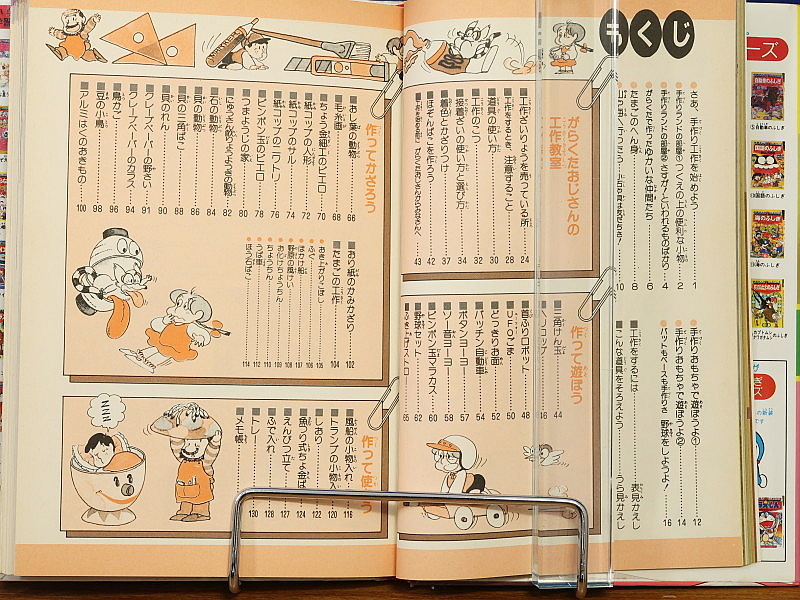 もくじ
さあ、手作り工作を始めよう 1
手作りランドの部屋① つくえの上の便利な小物 2
手作りランドの部屋② さすが！といわれるものばかり 4
がらくたで作ったゆかいな仲間たち 6
たまごのへん身 8
10
手作りおもちゃで遊ぼうよ① 12
手作りおもちゃで遊ぼうよ② 14
バットもベースも手作りさ 野球をしよう！ 16
工作をするには 表見かえし
こんな道具をそろえよう うら見かえし
がらくたおじさんの
工作教室
工作ざいりょうを売っている所 24
工作をするとき、注意すること 28
道具の使い方 30
工作のこつ 32
接着ざいの使い方と選び方 34
着色とかざりつけ 37
ほぞんばこを作ろう 42
43
作って遊ぼう
三角けん玉 44
46
首ふりロボット 48
UFOごま 50
どっきりお面 52
パッチン自動車 54
ボタンヨーヨー 57
ソーイ音ヨーヨー 58
ピンポン玉マラカス 60
野球セット 62
ふき上げストロー 65
作ってかざろう
おし葉の動物 66
毛糸画 68
ちょう金細工のピエロ 70
紙コップの人形 72
紙コップのサル 74
紙コップのニワトリ 76
ピンポン玉のピエロ 78
つまようじの家 80
82
石の動物 84
貝の動物 86
貝の三角ばこ 88
貝のれん 90
クレープペーパーの野さい 91
クレープペーパーのカラス 94
鳥かご 96
豆の小鳥 98
アルミはくのおきもの 100
おり紙のかみかざり 102
たまごの工作 104
おき上がりこぼし 105
ふぐ 106
ほかけ船 107
野原の風けい 108
お化けちょうちん 109
ちょうちん 110
うば車 112
ほう石ばこ 114
作って使おう
風船の小物入れ 116
トランプの小物入れ 120
しおり 122
魚つり式ちょ金ばこ 124
えんぴつ立て 127
ふで入れ 128
トレー 130
メモ帳